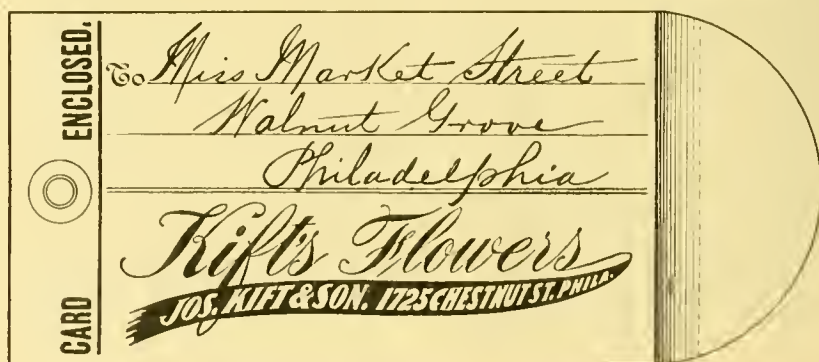 CARD ENCLOSED.
To Miss Market Street
Walnut Grove
Philadelphia
Kift's Flowers
JOS. KIFT & SON. 1725 CHESTNUT ST. PHILA.